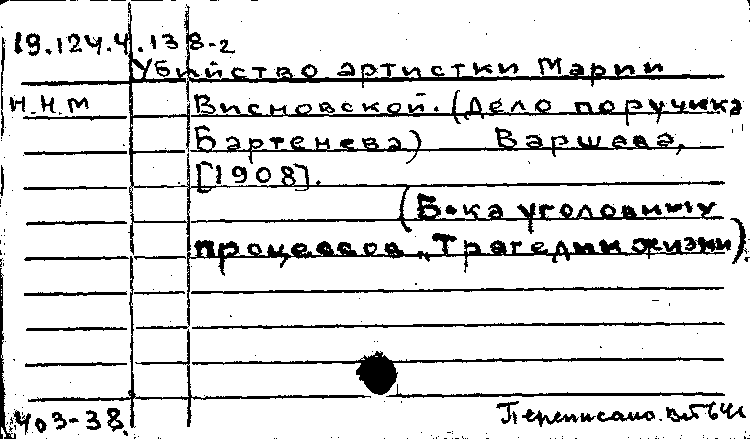 19.124.4.138-2
Убийство артистки Марии
Н.Н.М Висновской. (Дело поручика
Бартенева) Варшава,
[1908].
(Б-ка уголовных
процессов „Трагедии жизни)
403-38. Переписано.